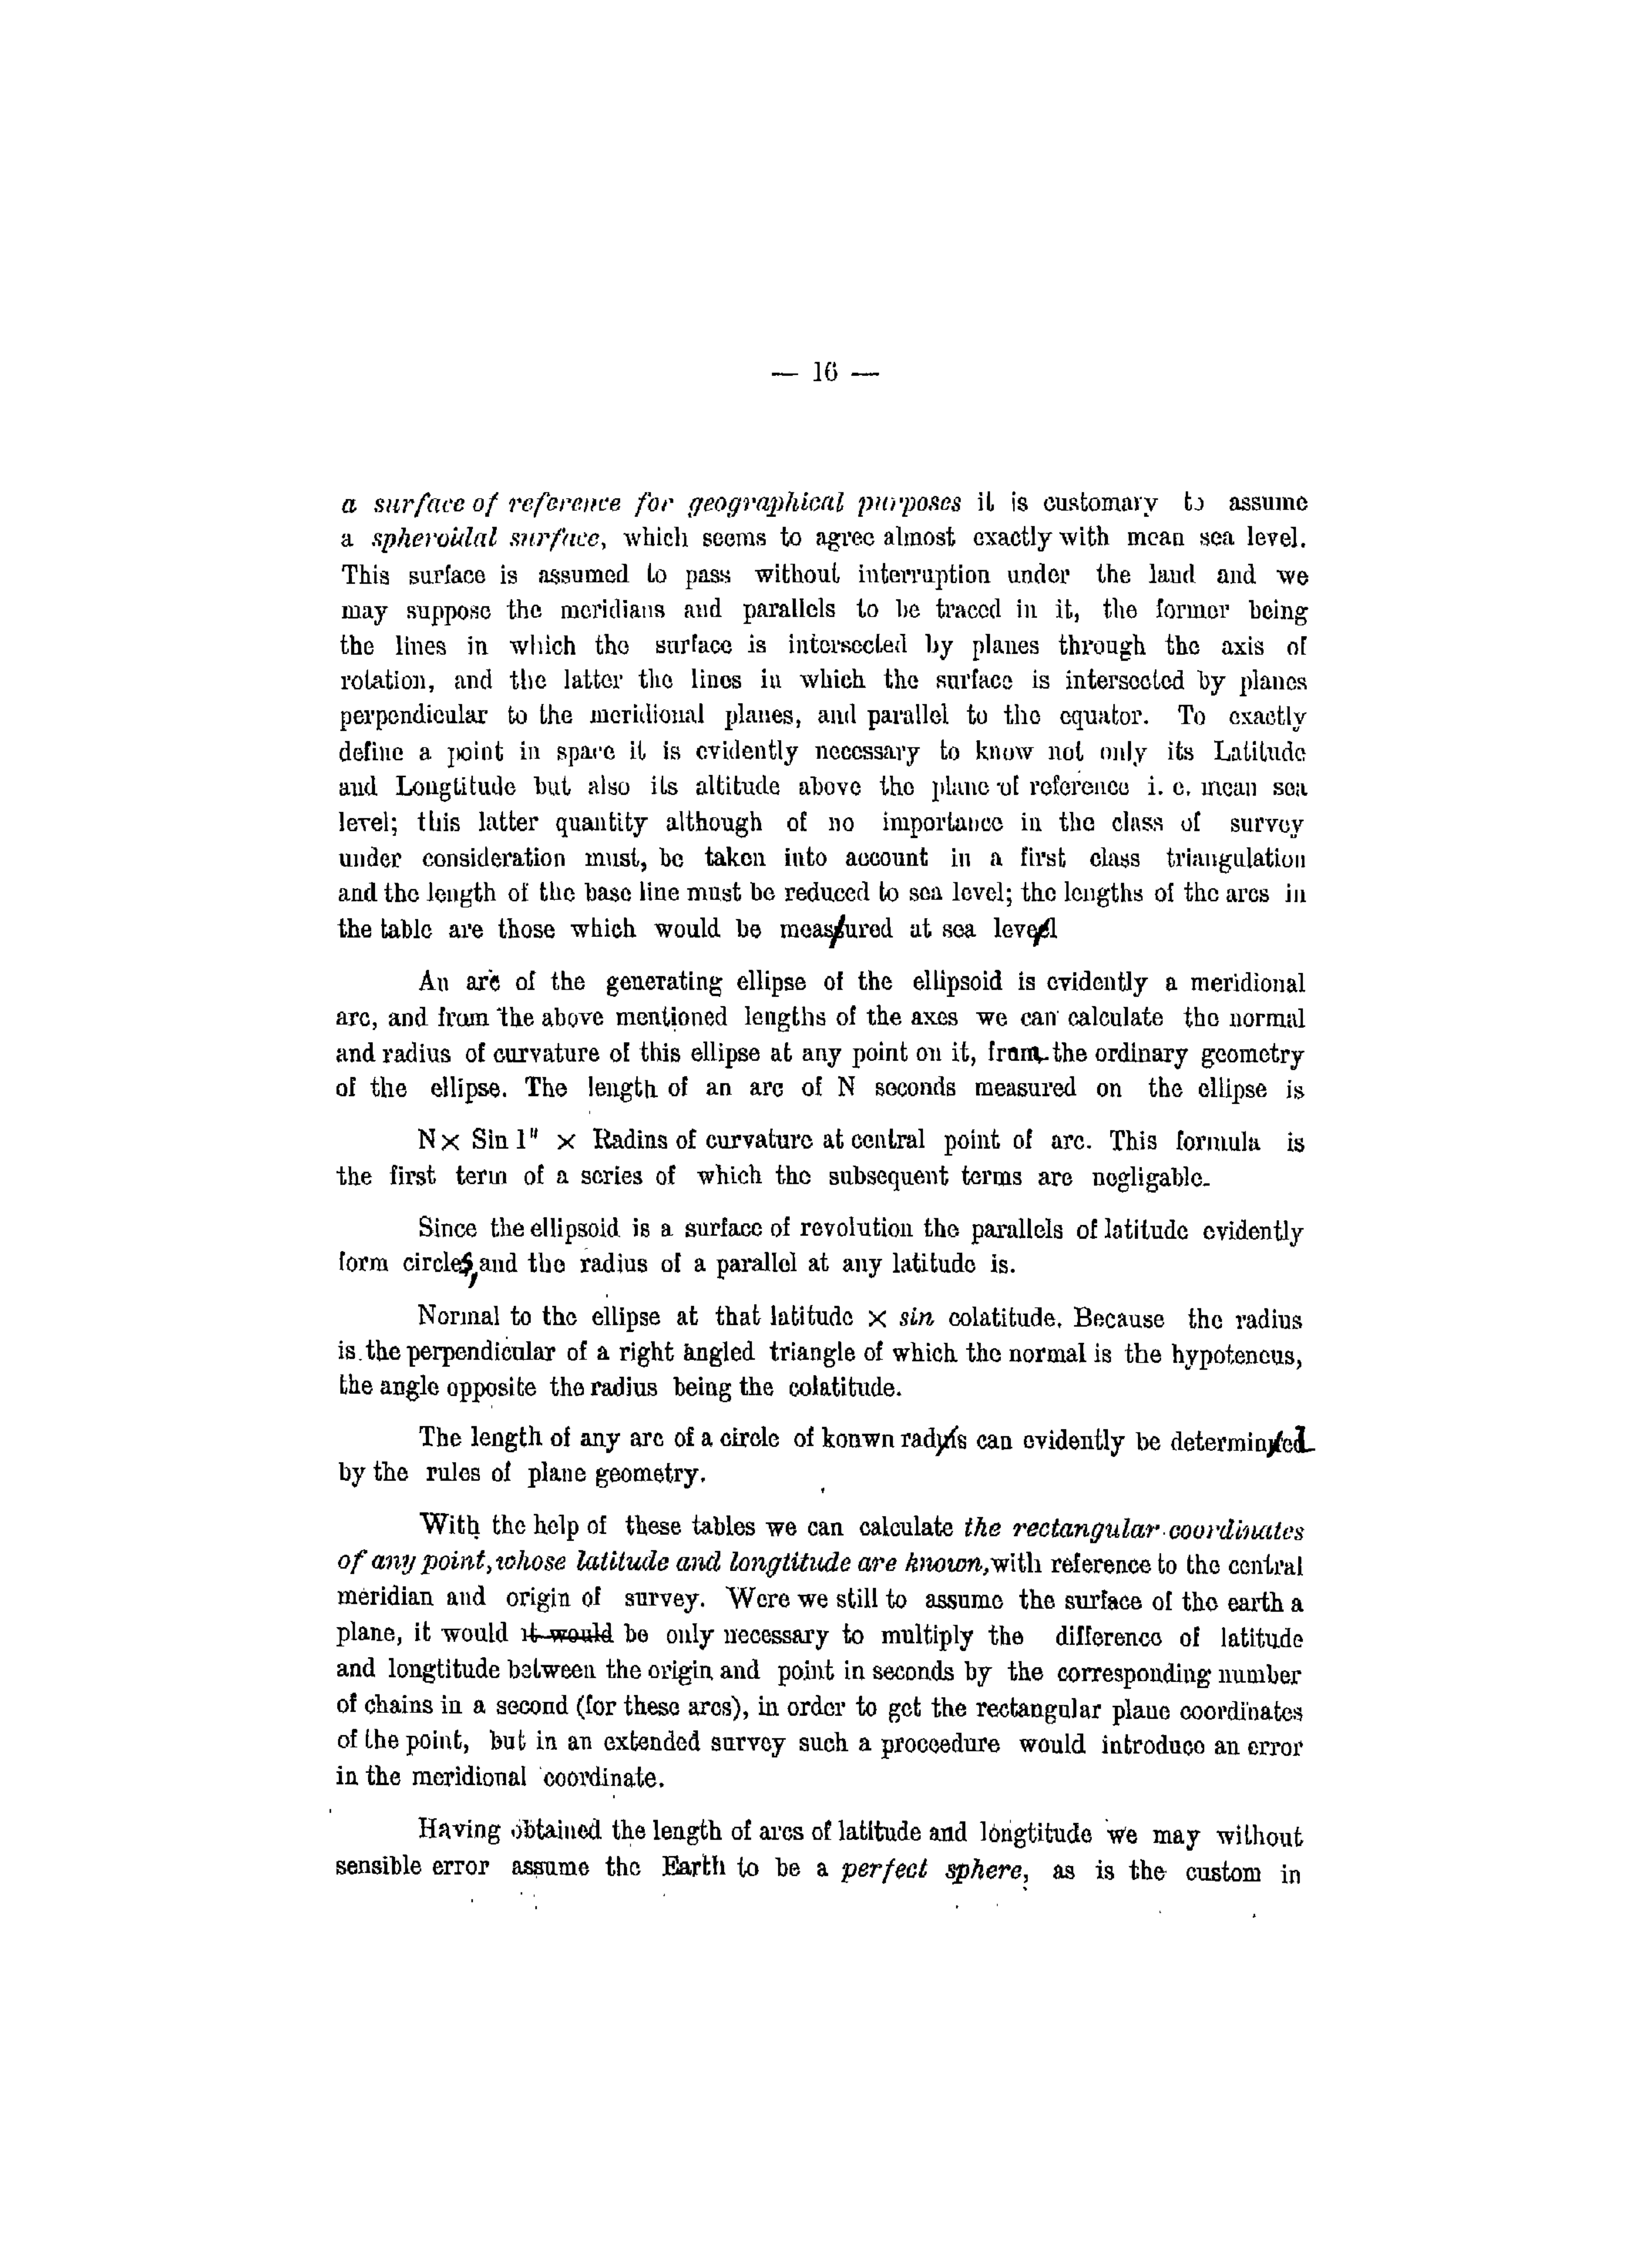 — 16 —
a surface of reference for geographical purposes it is customary to assume
a spheroidal surface, which seems to agree almost exactly with mean sea level.
This surface is assumed to pass without interruption under the land and we
may suppose the meridians and parallels to be traced in it, the former being
the lines in which the surface is intersected by planes through the axis of
rotation, and the latter the lines in which the surface is intersected by planes
perpendicular to the meridional planes, and parallel to the equator. To exactly
define a point in space it is evidently necessary to know not only its Latitude
and Longtitude but also its altitude above the plane of reference i. e. mean sea
level; this latter quantity although of no importance in the class of survey
under consideration must, be taken into account in a first class triangulation
and the length of the base line must be reduced to sea level; the lengths of the arcs in
the table are those which would be measured at sea level
An arc of the generating ellipse of the ellipsoid is evidently a meridional
arc, and from the above mentioned lengths of the axes we can calculate the normal
and radius of curvature of this ellipse at any point on it, from the ordinary geometry
of the ellipse. The length of an arc of N seconds measured on the ellipse is
N× Sin 1" × Radins of curvature at central point of arc. This formula is
the first term of a series of which the subsequent terms are negligable.
Since the ellipsoid is a surface of revolution the parallels of latitude evidently
form circles, and the radius of a parallel at any latitude is.
Normal to the ellipse at that latitude × sin colatitude. Because the radius
is the perpendicular of a right angled triangle of which the normal is the hypoteneus,
the angle opposite the radius being the colatitude.
The length of any arc of a circle of konwn radys can evidently be determined
by the rules of plane geometry.
With the help of these tables we can calculate the rectangular coordinates
of any point, whose latitude and longtitude are known, with reference to the central
meridian and origin of survey. Were we still to assume the surface of the earth a
plane, it would it would be only necessary to multiply the difference of latitude
and longtitude between the origin and point in seconds by the corresponding number
of chains in a second (for these arcs), in order to get the rectangular plane coordinates
of the point, but in an extended survey such a proceedure would introduce an error
in the meridional coordinate.
Having obtained the length of arcs of latitude and longtitude we may without
sensible error assume the Earth to be a perfect sphere, as is the custom in